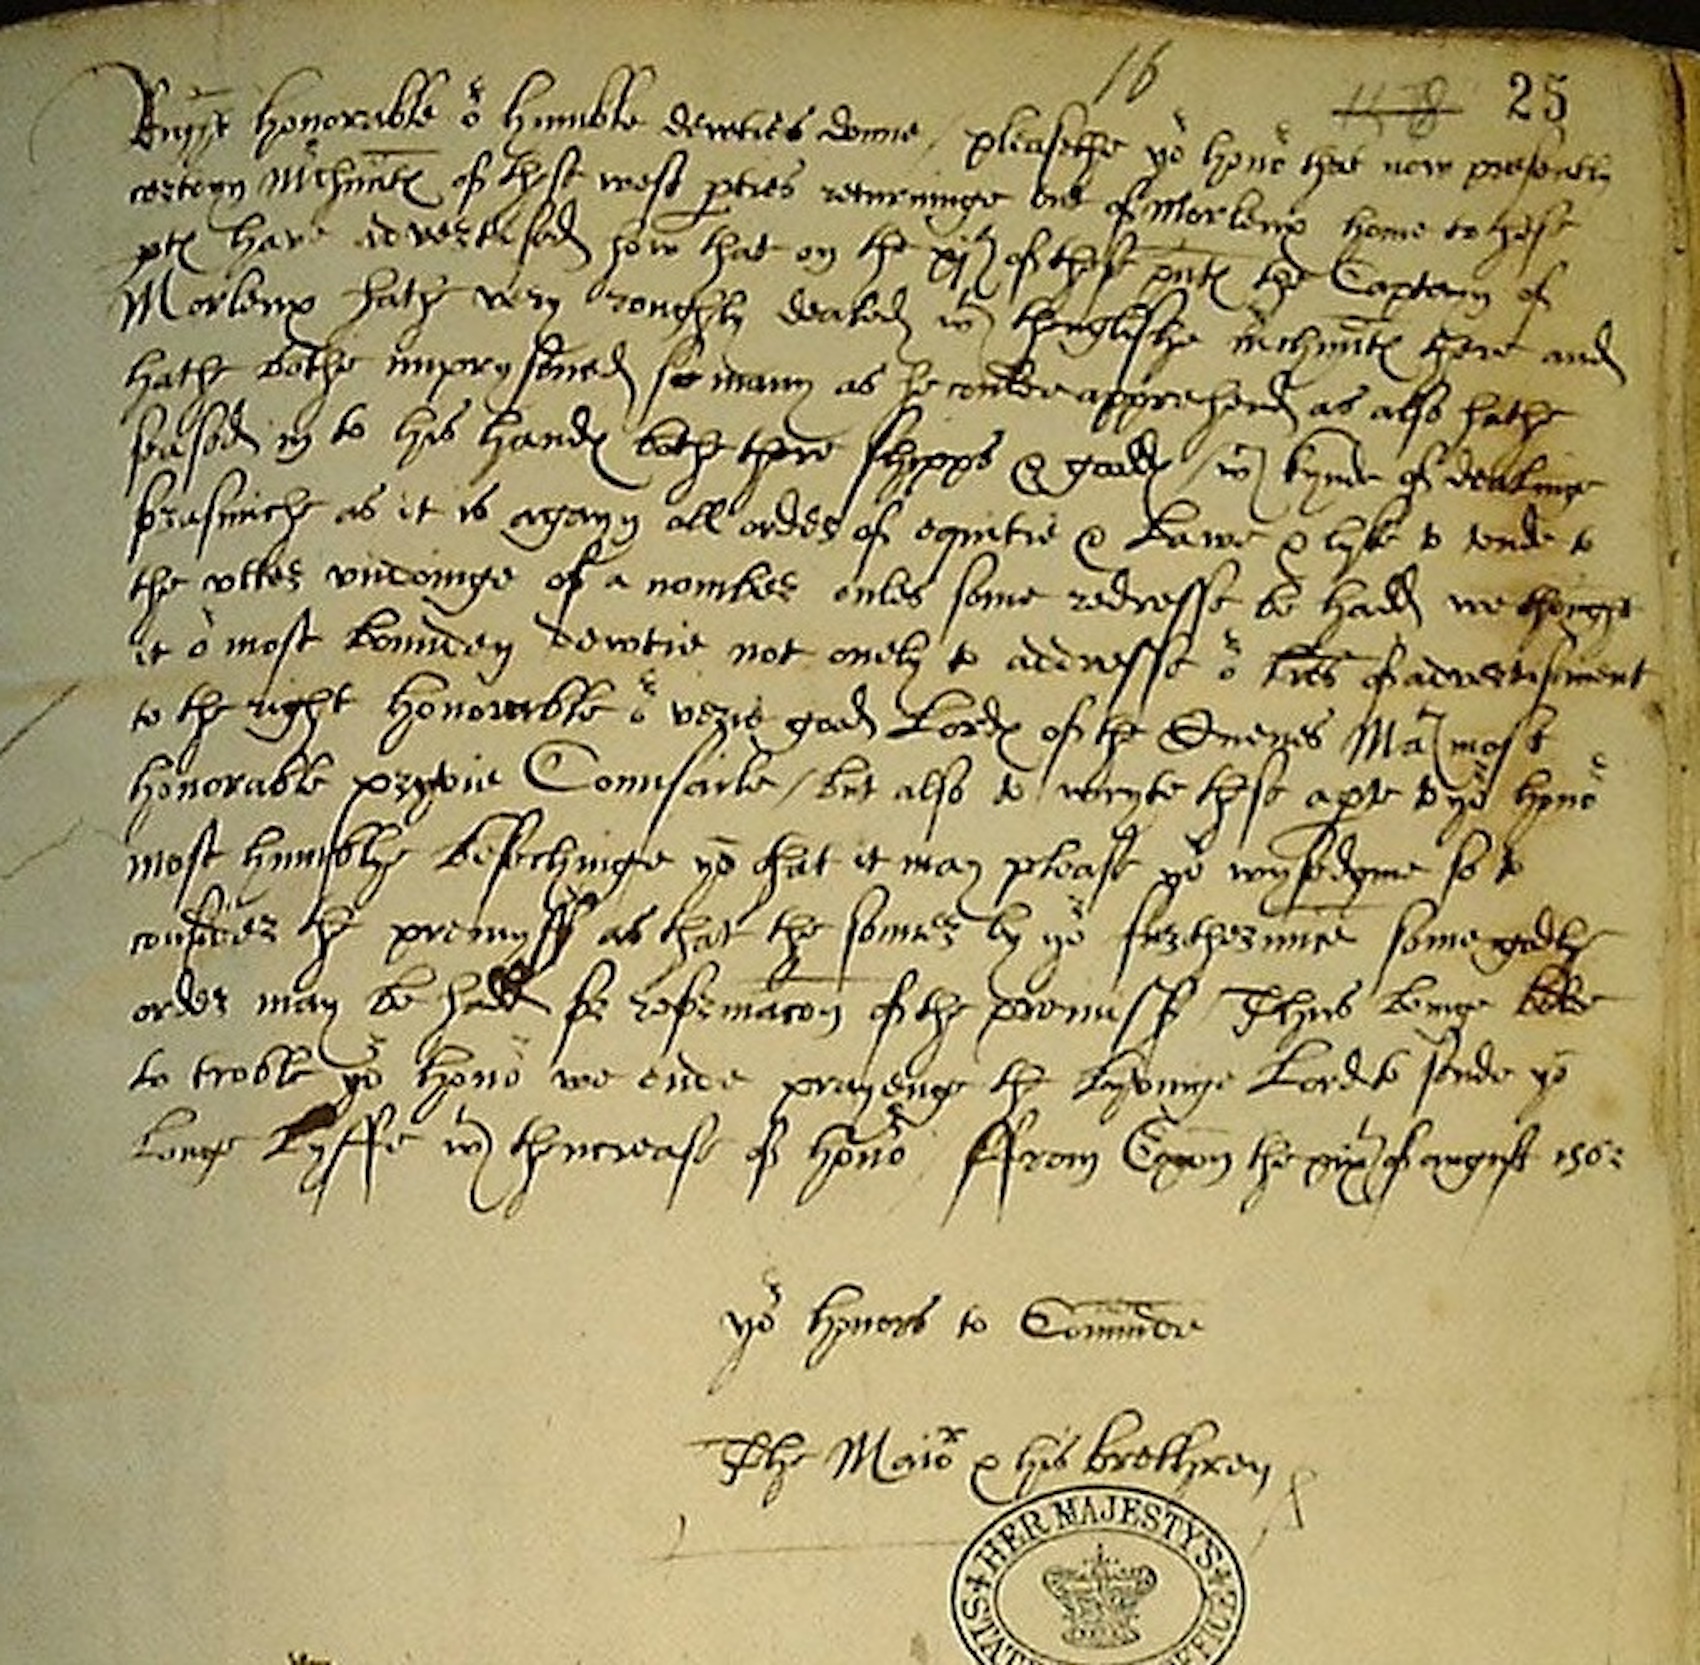 16
1178 25
Right honorable or humble deweties donne / pleasethe yor honor that now presently
certeyn Mrchauntes of thes west pties returninge out of Morleux home to thes
ptes have advertised how that on the xijth of these pntes the Captayn of
Morleux hathe very roughly dealed wth thenglishe mrchauntes there and
hathe bothe imprysoned so many as he coulde apprehend as also hathe
seased in to his handes bothe there shipps & goodes / wch kynde of dealinge
forasmuche as it is agayn all order of equitie & Lawe & lyke to tende to
the utter undoinge of a nomber onles some redresse be hadd we thought
it or most bounden dewtie not onely to addresse or lres of advertisement
to the right honorable or verie good Lordes of the Quenes Matis most
honorable pryvie Counsaile / but also to wryte these apte to yor honor
most humblye besechinge yor that it may please yor wysedome so to
consider the premyss as that the soner by yor furthermce some godly
order may be hadd for reformacon of the premiss / Thus beinge bolde
to troble yor honor we ende prayenge the lyvinge Lord to sende yor
longe lyffe wth thincrease of honor / ffrom Exon the xixth of august 1562
yor honors to Commde
The Maior & his Brethren
HER MAJESTY'S
STATE OFFICE